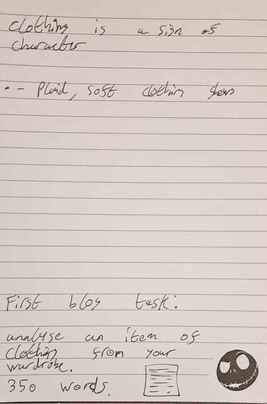 Clothing is a sign of
character
- - Plaid, soft clothing shows
First blog task:
analyse an item of
clothing from your
wardrobe.
350 words.